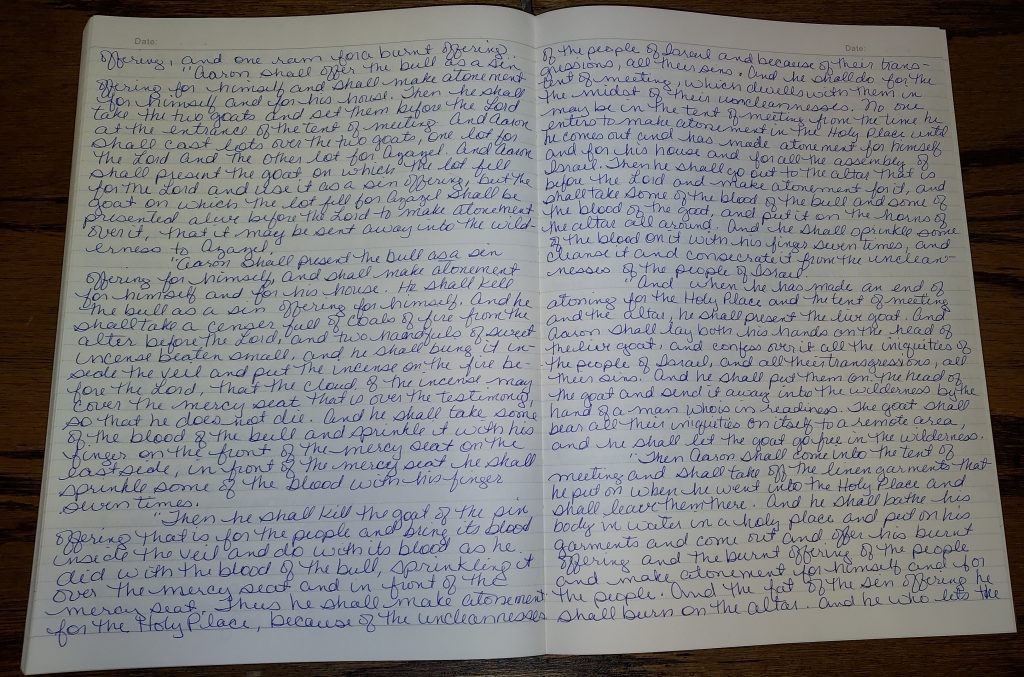 Date:
offering, and one ram for a burnt offering.
"Aaron shall offer the bull as a sin
offering for himself and shall make atonement
for himself and for his house. Then he shall
take the two goats and set them before the Lord
at the entrance of the tent of meeting. And Aaron
shall cast lots over the two goats, one lot for
the Lord and the other lot for Azazel. And Aaron
shall present the goat on which the lot fell
for the Lord and use it as a sin offering, but the
goat on which the lot fell for Azazel shall be
presented alive before the Lord to make atonement
over it, that it may be sent away into the wild-
erness to Azazel.
"Aaron shall present the bull as a sin
offering for himself, and shall make atonement
for himself and for his house. He shall kill
the bull as a sin offering for himself. And he
shall take a censer full of coals of fire from the
alter before the Lord, and two handfuls of sweet
incense beaten small, and he shall bring it in-
side the veil and put the incense on the fire be-
fore the Lord, that the cloud of the incense may
cover the mercy seat that is over the testimony,
so that he does not die. And he shall take some
of the blood of the bull and sprinkle it with his
finger on the front of the mercy seat on the
east side, in front of the mercy seat he shall
sprinkle some of the blood with his finger
seven times.
"Then he shall kill the goat of the sin
offering that is for the people and bring its blood
inside the veil and do with its blood as he
did with the blood of the bull, sprinkling it
over the mercy seat and in front of the
mercy seat. Thus he shall make atonement
for the Holy Place, because of the uncleannesses
Date:
of the people of Israel and because of their trans-
gressions, all their sins. And he shall do for the
tent of meeting, which dwells with them in
the midst of their uncleannesses. No one
may be in the tent of meeting from the time he
enters to make atonement in the Holy Place until
he comes out and has made atonement for himself
and for his house and for all the assembly of
Israel. Then he shall go out to the altar that is
before the Lord and make atonement for it, and
shall take some of the blood of the bull and some of
the blood of the goat, and put it on the horns of
the altar all around. And he shall sprinkle some
of the blood on it with his finger seven times, and
cleanse it and consecrate it from the unclean-
nesses of the people of Israel.
"And when he has made an end of
atoning for the Holy Place and the tent of meeting
and the altar, he shall present the live goat. And
Aaron shall lay both his hands on the head of
the live goat, and confess over it all the iniquities of
the people of Israel, and all their transgressions, all
their sins. And he shall put them on the head of
the goat and send it away into the wilderness by the
hand of a man who is in readiness. The goat shall
bear all their iniquities on itself to a remote area,
and he shall let the goat go free in the wilderness.
"Then Aaron shall come into the tent of
meeting and shall take off the linen garments that
he put on when he went into the Holy Place and
shall leave them there. And he shall bathe his
body in water in a holy place and put on his
garments and come out and offer his burnt
offering and the burnt offering of the people
and make atonement for himself and for
the people. And the fat of the sin offering he
shall burn on the altar. And he who lets the